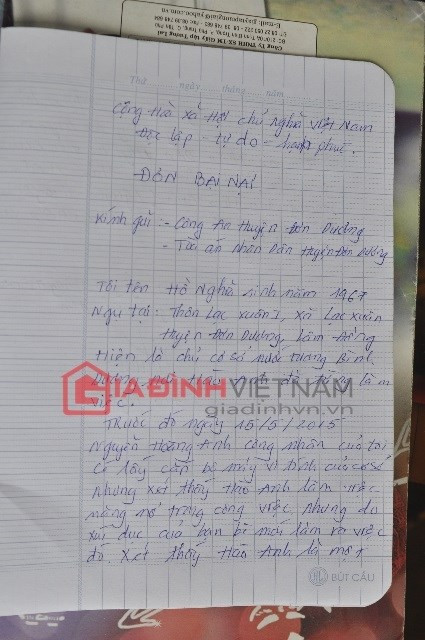 Công TNHH SX-TM Giấy tập Tương Lai
Thứ ngày tháng năm
Cộng Hoà xã Hội chủ Nghĩa Việt Nam
Độc lập - tự do - hạnh phúc.
ĐƠN BẠI NẠI
Kính gửi :- Công An Huyện Đơn Dương
- Toà án nhân Dân Huyện Đơn Dương
Tôi tên Hồ Nghĩa sinh năm 1967
Ngụ tại: Thôn Lạc xuân 1, xã Lạc xuân
Huyện Đơn Dương, Lâm Đồng
Hiện là chủ cơ sở nước tương Bình
Dương, nơi Hào Anh đã từng làm
việc.
GIAĐÌNHVIETNAM
giadinhvn.vn
Trước đó ngày 15/5/2015
Nguyễn Hoàng Anh công nhân của tôi
có lấy cặp bộ máy vi tính của cơ sở
Nhưng xét thấy Hào Anh làm việc
năng nổ trong công việc nhưng do
xúi dục của bạn bè mới làm ra việc
đó. Xét thấy Hào Anh là một
BÚT CẦU